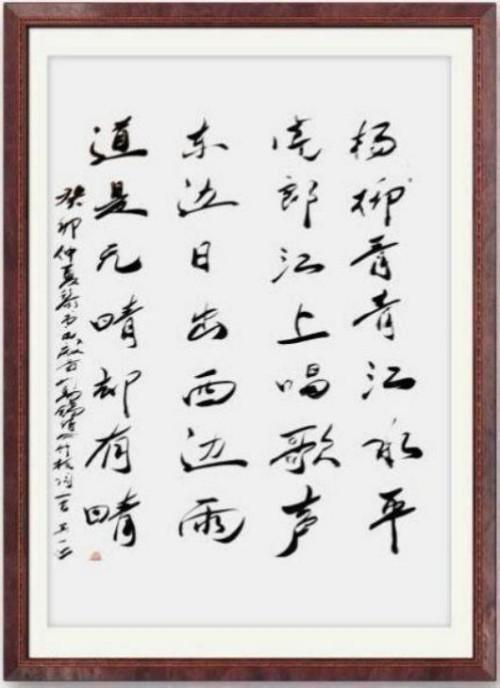 杨柳青青江水平
闻郎江上唱歌声
东边日出西边雨
道是无晴却有晴
癸卯仲夏 书 刘禹锡 竹枝词一首